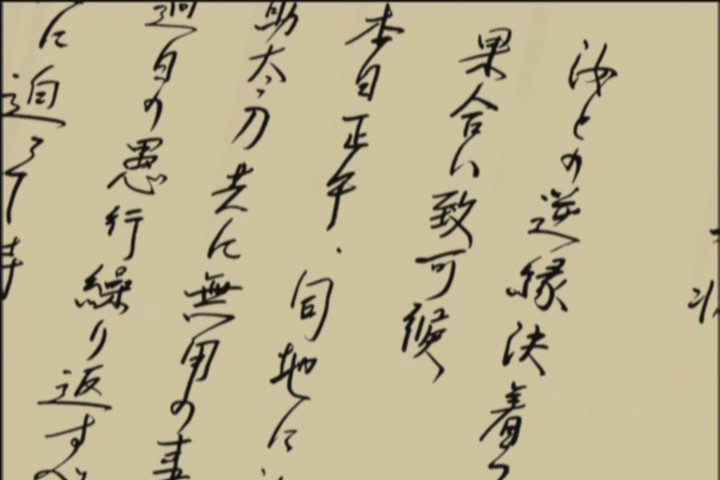 状
汝との逆縁決着
果合い致可候
本日正午、同地に
助太刀共に無用の事
過日の愚行繰り返すべ
に迫